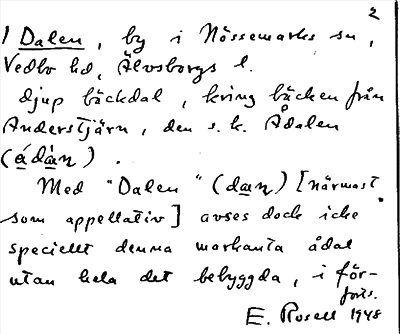 2
/ Dalen, by i Nössemarks sn,
Vedbo hd, Älvsborgs l.
djup bäckdal, kring bäcken från
Anderstjärn, den s.k. Ådalen
(ádàn).
Med "Dalen" (dan) [närmast
som appellativ] avses dock icke
speciellt denna markanta ådal
utan hela det bebyggda, i för-
forts.
E. Rosell 1948